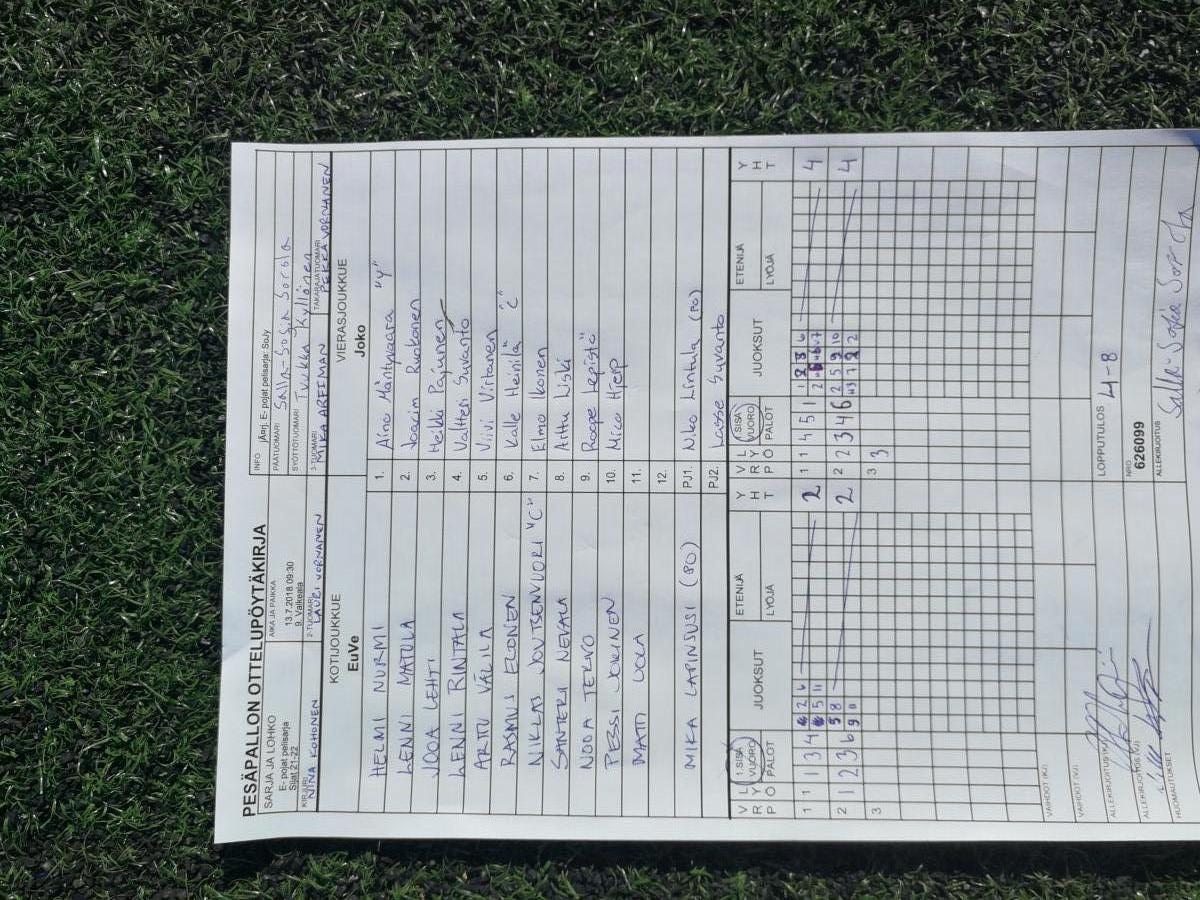 PESÄPALLON OTTELUPÖYTÄKIRJA
SARJA JA LOHKO
E- pojat pelisarja
Sijat 21-22
AIKA JA PAIKKA
13.7.2018 09:30
9. Valkeala
INFO jÄrrj. E- pojat pelisarja: SoJy
PÄÄTUOMARI Salla-Sofia Sorola
SYÖTTÖTUOMARI Tuukka Kyllönen
KIRJURI NINA KOHONEN
2-TUOMARI LAURI VORNANEN
3-TUOMARI MIKA AREIMAN
TAKARAJATUOMARI PEKKA VORNANEN
KOTIJOUKKUE
EuVe
VIERASJOUKKUE
Joko
HELMI NURMI 1. Aino Mäntyvaara "Y"
LENNI MATULA 2. Joacim Ruokonen
JOOA LEHTI 3. Heikki Pajunen
LENNI RINTALA 4. Valtteri Suvanto
ARTTU VÄLILÄ 5. Viivi Virtanen
RASMUS ELONEN 6. Kalle Heinilä "C"
NIKLAS JOUTSENVUORI "C" 7. Elmo Ikonen
SANTERI NEVALA 8. Arttu Liski
NOOA TERVO 9. Roope Lepistö
PESSI JOKINEN 10. Mico Hjerp
MATTI UOLA 11.
12.
MIKA LAPINSUSI (PO) PJ1. Niko Lintula (PO)
PJ2. Lasse Suvanto
V L 1.SISÄ JUOKSUT ETENIJÄ Y V L 1.SISÄ JUOKSUT ETENIJÄ Y
R Y VUORO H R Y VUORO H
P Ö PALOT LYÖJÄ T P Ö PALOT LYÖJÄ T
1 1 1 3 4 2 6 2 1 1 1 4 5 1 4
2 1 2 3 6 5 8 2 2 2 3 4 6 2 5 9 10 4
3 3 3
VAIHDOT (KJ)
VAIHDOT (VJ)
LOPPUTULOS 4-8
ALLEKIRJOITUS (KJ)
NRO
626099
ALLEKIRJOITUS (VJ)
ALLEKIRJOITUS Salla-Sofia Sorola
HUOMAUTUKSET